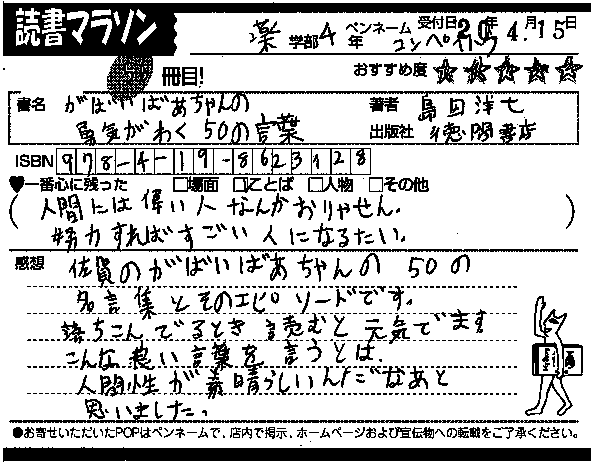 読書マラソン
薬 学部 4 年 ペンネーム コンペイトウ 受付日 20年 4月 15日
冊目!
おすすめ度 ☆☆☆☆☆
書名 がばいばあちゃんの 勇気がわく 50の言葉
著者 島田洋七
出版社 徳間書店
ISBN 978-4-19-8623128
♥一番心に残った □場面 □ことば □人物 □その他
(人間には偉い人なんかおりゃせん.
努力すればすごい人になるたい.)
感想 佐賀のがばいばあちゃんの 50の
名言集とそのエピソードです.
落ちこんでるとき 読むと元気でます
こんな 言葉を言うとは.
人間性が素晴らしいんだなあと
思いました。
●お寄せいただいたPOPはペンネームで、店内で掲示、ホームページおよび宣伝物への転載をご了承ください。